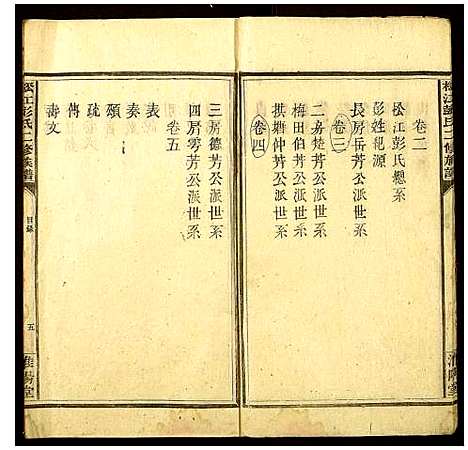 卷二
松江彭氏總系
彭姓紀源
長房岳芳公派世系
卷三
二房楚芳公派世系
梅田伯芳公派世系
棋塘仲芳公派世系
卷四
三房德芳公派世系
四房雩芳公派世系
卷五
表
奏
頌
疏
傳
壽文
松江彭氏二修族譜
目錄
五
淮陽堂